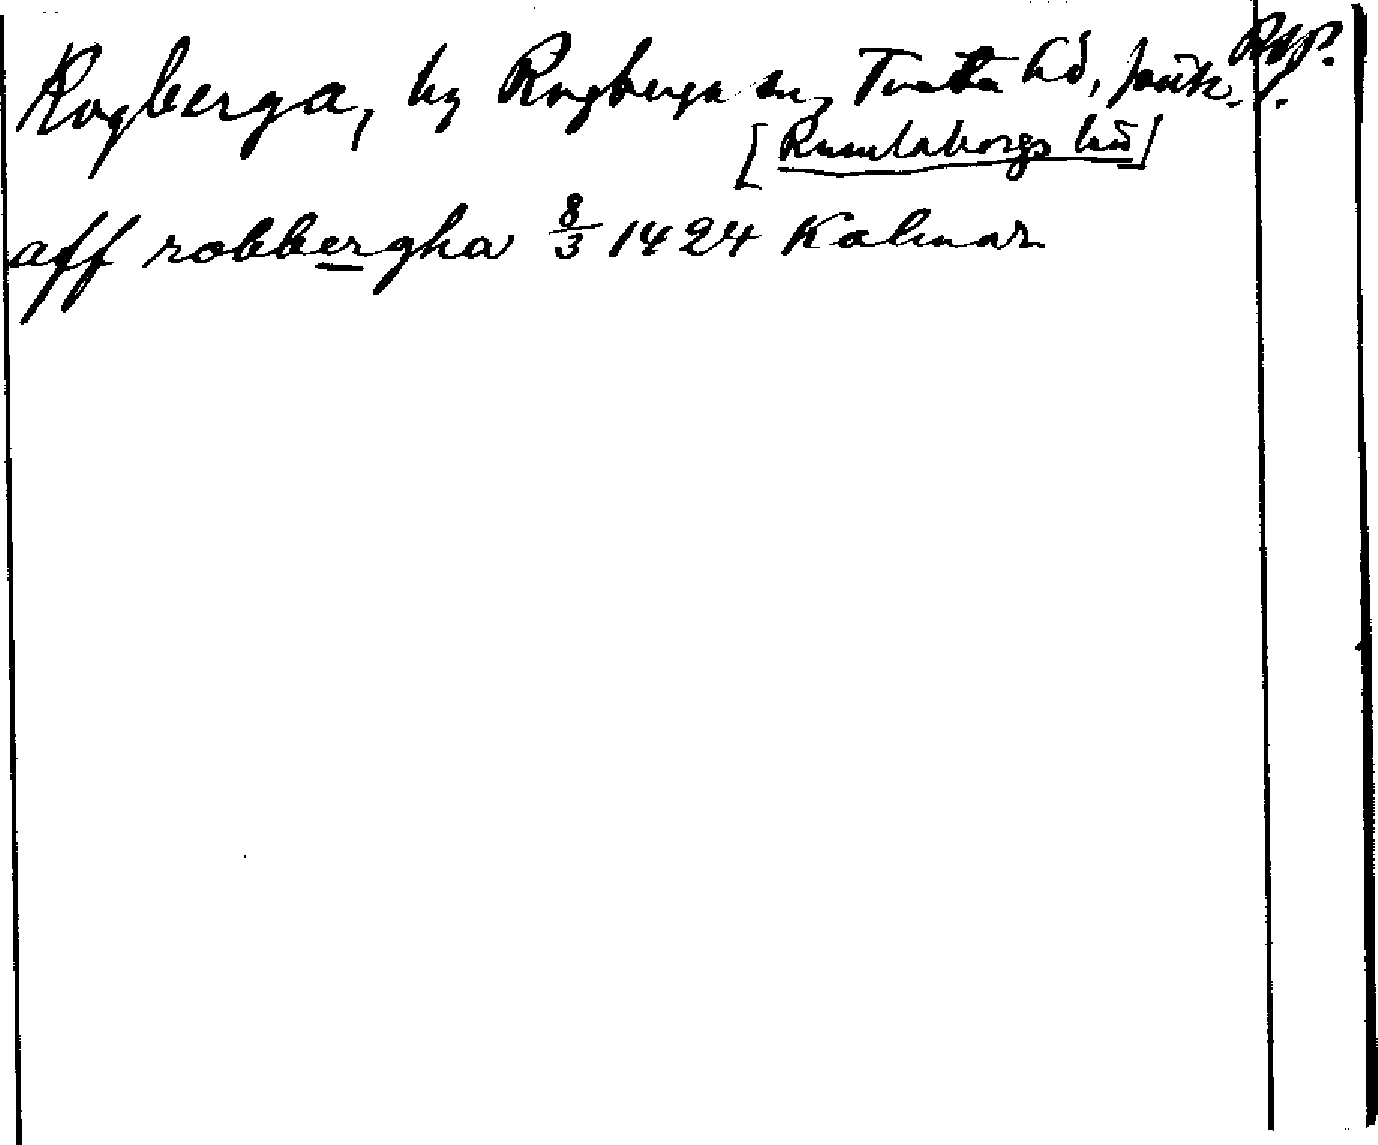 Rogberga, by Rogberga sn, Tveta hd, Jönk. l.
[Rumlaborgs län]
aff robbergha 8/3 1424 Kalmar